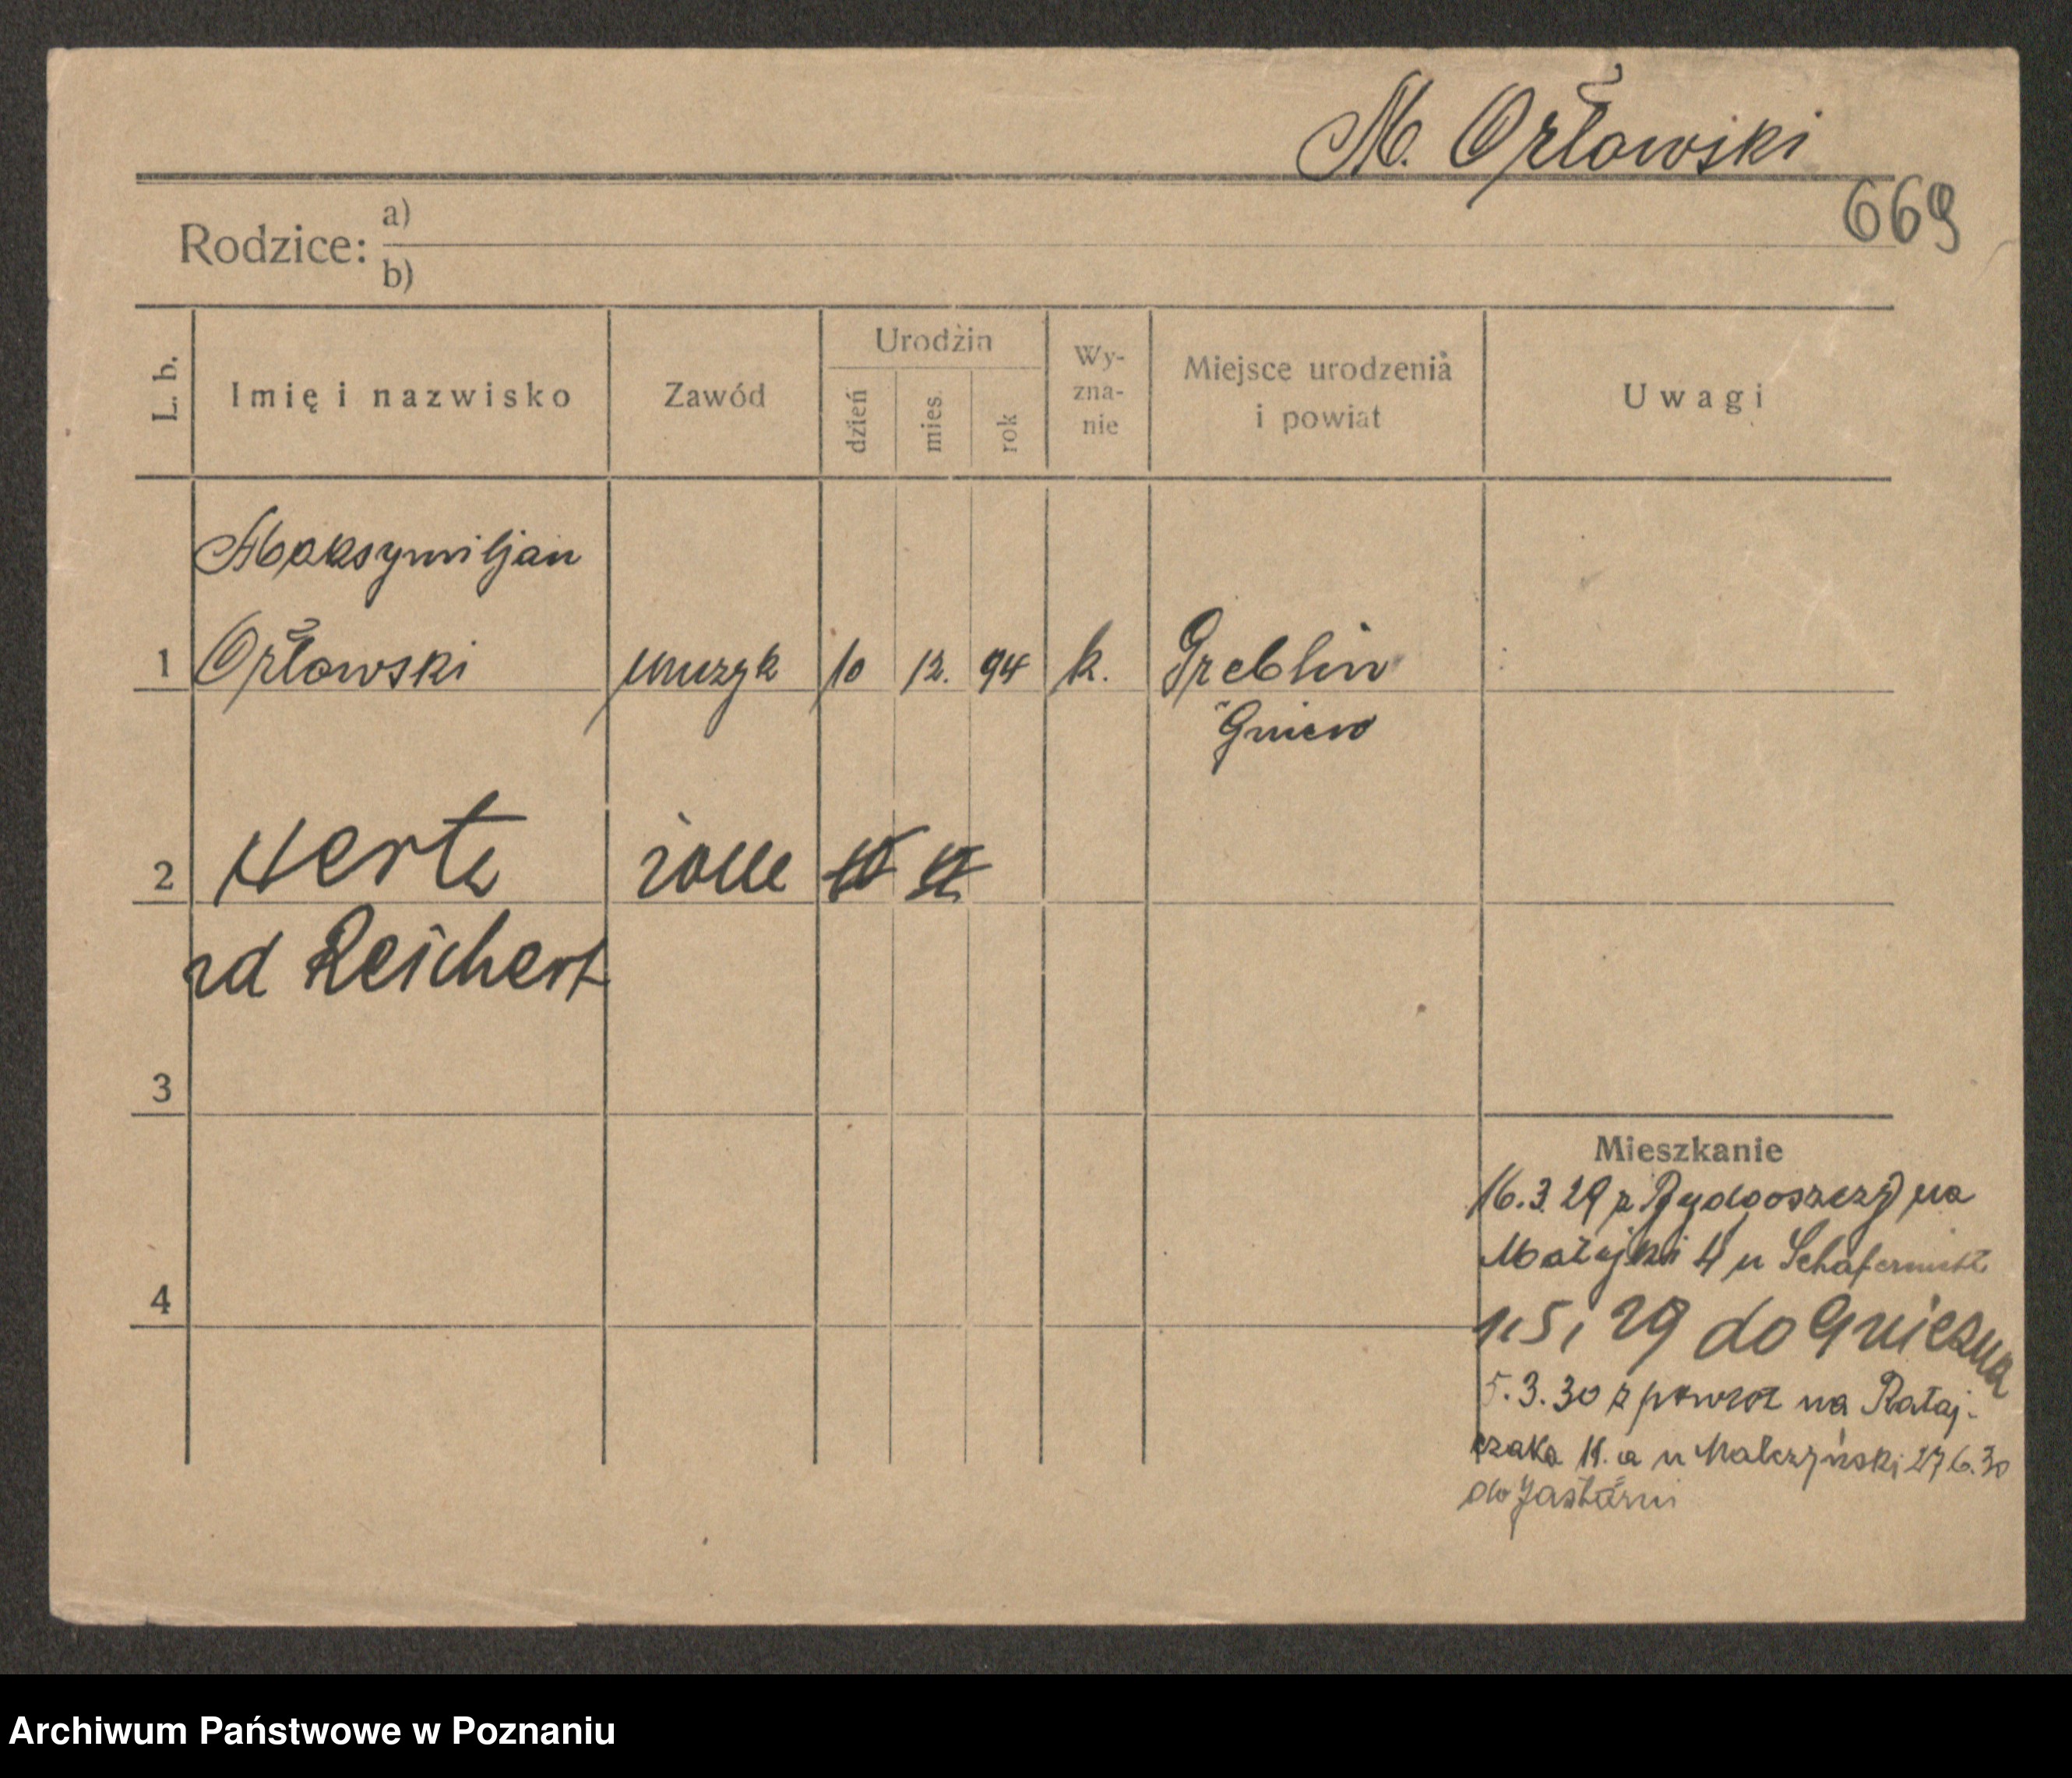 M. Orłowski
669
Rodzice: a)
b)
L. b.
Imię i nazwisko
Zawód
Urodzin
dzień
mies.
rok
Wy-
zna-
nie
Miejsce urodzenia
i powiat
Uwagi
Maksymiljan
1 Orłowski muzyk 10 12. 94 k. Greblin
Gniew
2 Herta
zd Reichert
3
4
Mieszkanie
16.3.29 z Bydgoszczy na
4 u
1.5.29 do Gniezna
5.3.30 z powrot na Rataj-
czaka 11.a u Malczyński 27.6.30
do Jastarni
Archiwum Państwowe w Poznaniu